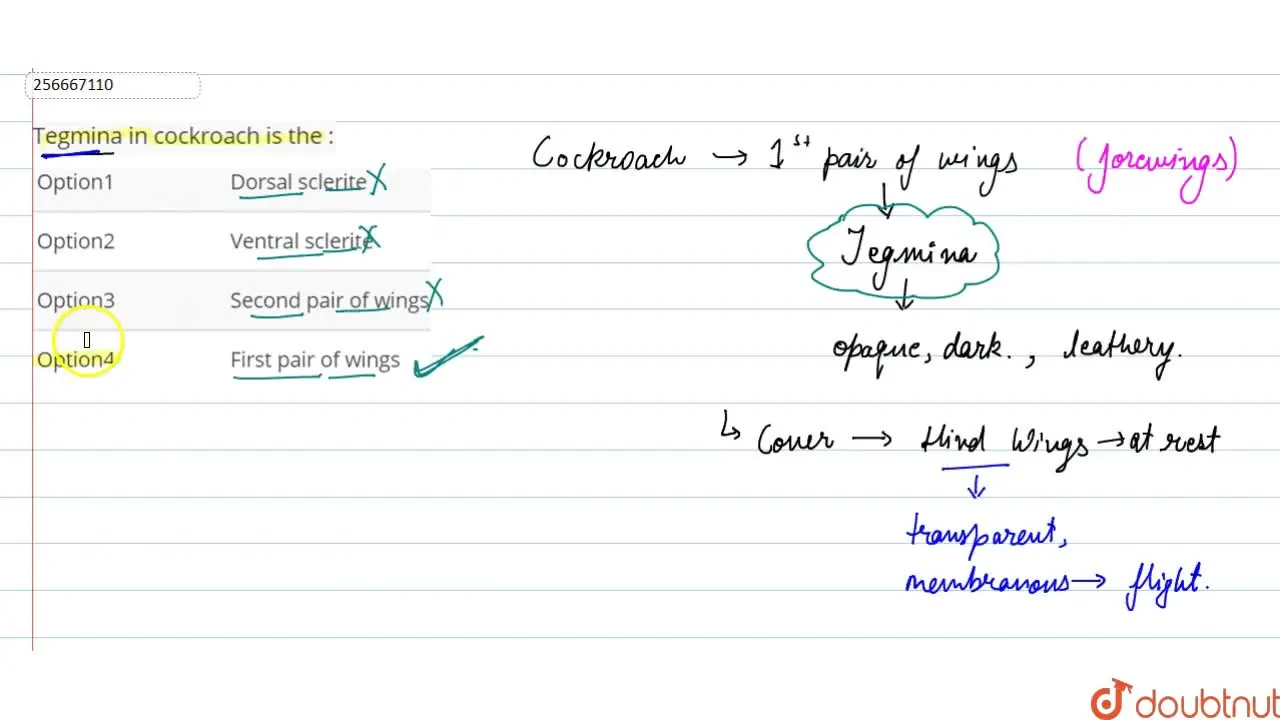 256667110
Tegmina in cockroach is the :
Option1 Dorsal sclerite X
Option2 Ventral sclerite X
Option3 Second pair of wings X
Option4 First pair of wings ✓
Cockroach → 1st pair of wings (forewings)
↓
Tegmina
↓
opaque, dark. , leathery.
↳ Cover → Hind Wings → at rest
↓
transparent,
membranous → flight.
doubtnut